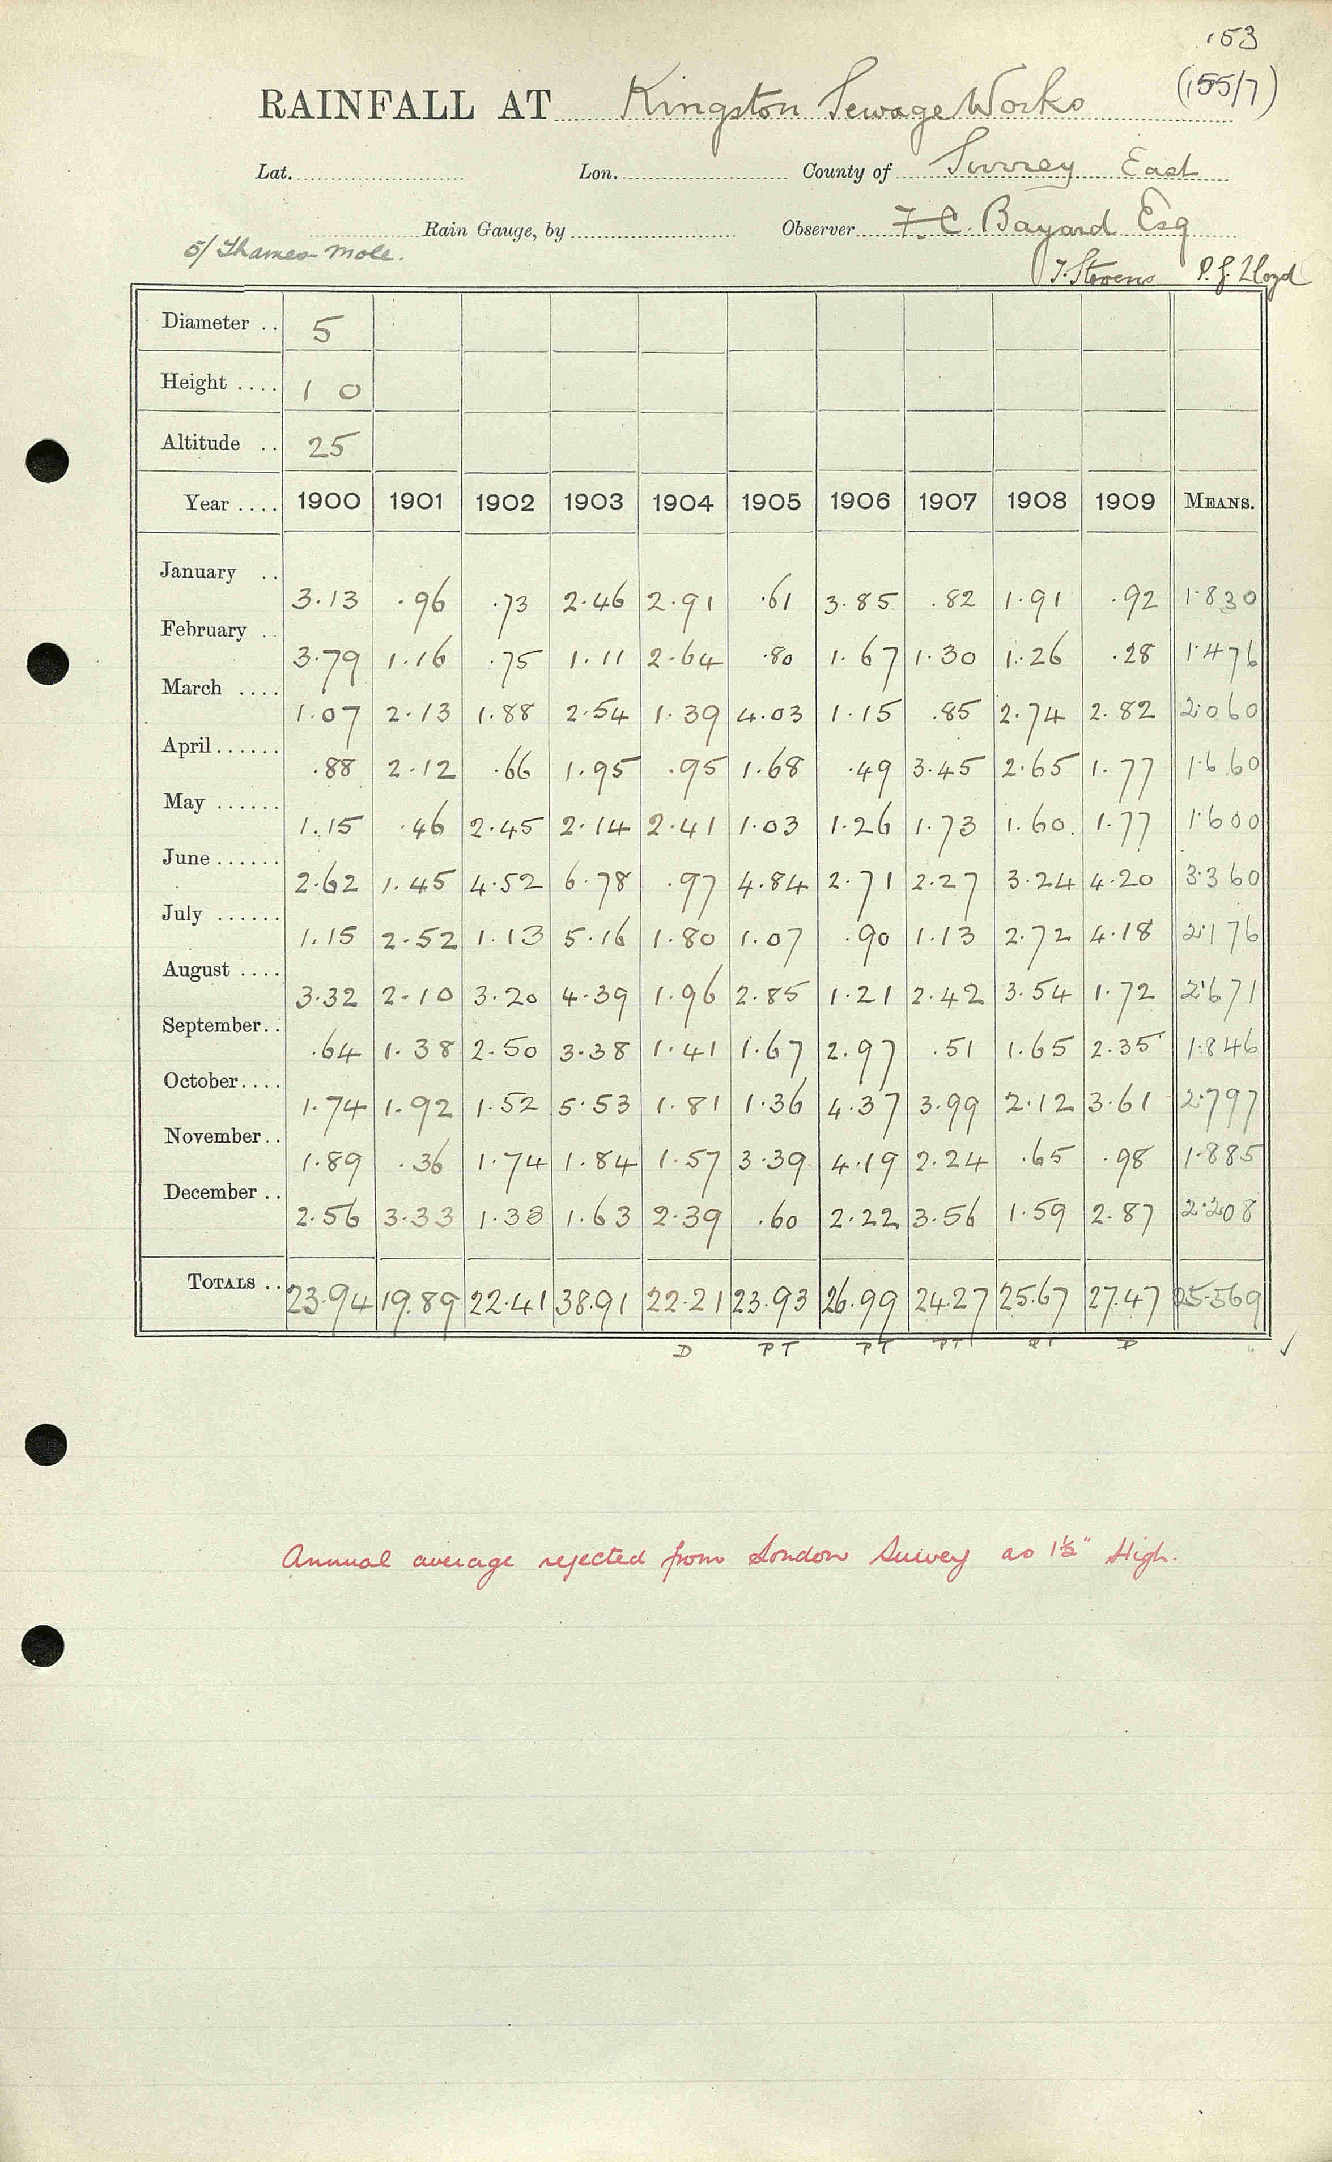 153
RAINFALL AT Kingston Sewage Works (155/7)
Lat. Lon. County of Surrey East
Rain Gauge, by Observer F. C. Bayard Esq
5/ Thames-Mole. J. Stevens P. J. Lloyd
Diameter .. 5
Height .... 1 0
Altitude .. 25
Year .... 1900 1901 1902 1903 1904 1905 1906 1907 1908 1909 MEANS.
January .. 3.13 .96 .73 2.46 2.91 .61 3.85 .82 1.91 .92 1.830
February .. 3.79 1.16 .75 1.11 2.64 .80 1.67 1.30 1.26 .28 1.476
March .... 1.07 2.13 1.88 2.54 1.39 4.03 1.15 .85 2.74 2.82 2.060
April ...... .88 2.12 .66 1.95 .95 1.68 .49 3.45 2.65 1.77 1.660
May ...... 1.15 .46 2.45 2.14 2.41 1.03 1.26 1.73 1.60 1.77 1.600
June ...... 2.62 1.45 4.52 6.78 .97 4.84 2.71 2.27 3.24 4.20 3.360
July ...... 1.15 2.52 1.13 5.16 1.80 1.07 .90 1.13 2.72 4.18 2.176
August .... 3.32 2.10 3.20 4.39 1.96 2.85 1.21 2.42 3.54 1.72 2.671
September .. .64 1.38 2.50 3.38 1.41 1.67 2.97 .51 1.65 2.35 1.846
October .... 1.74 1.92 1.52 5.53 1.81 1.36 4.37 3.99 2.12 3.61 2.797
November .. 1.89 .36 1.74 1.84 1.57 3.39 4.19 2.24 .65 .98 1.885
December .. 2.56 3.33 1.33 1.63 2.39 .60 2.22 3.56 1.59 2.87 2.208
TOTALS .. 23.94 19.89 22.41 38.91 22.21 23.93 26.99 24.27 25.67 27.47 25.569
D PT PT PT PT D ✓
Annual average rejected from London Survey as 1½" High.